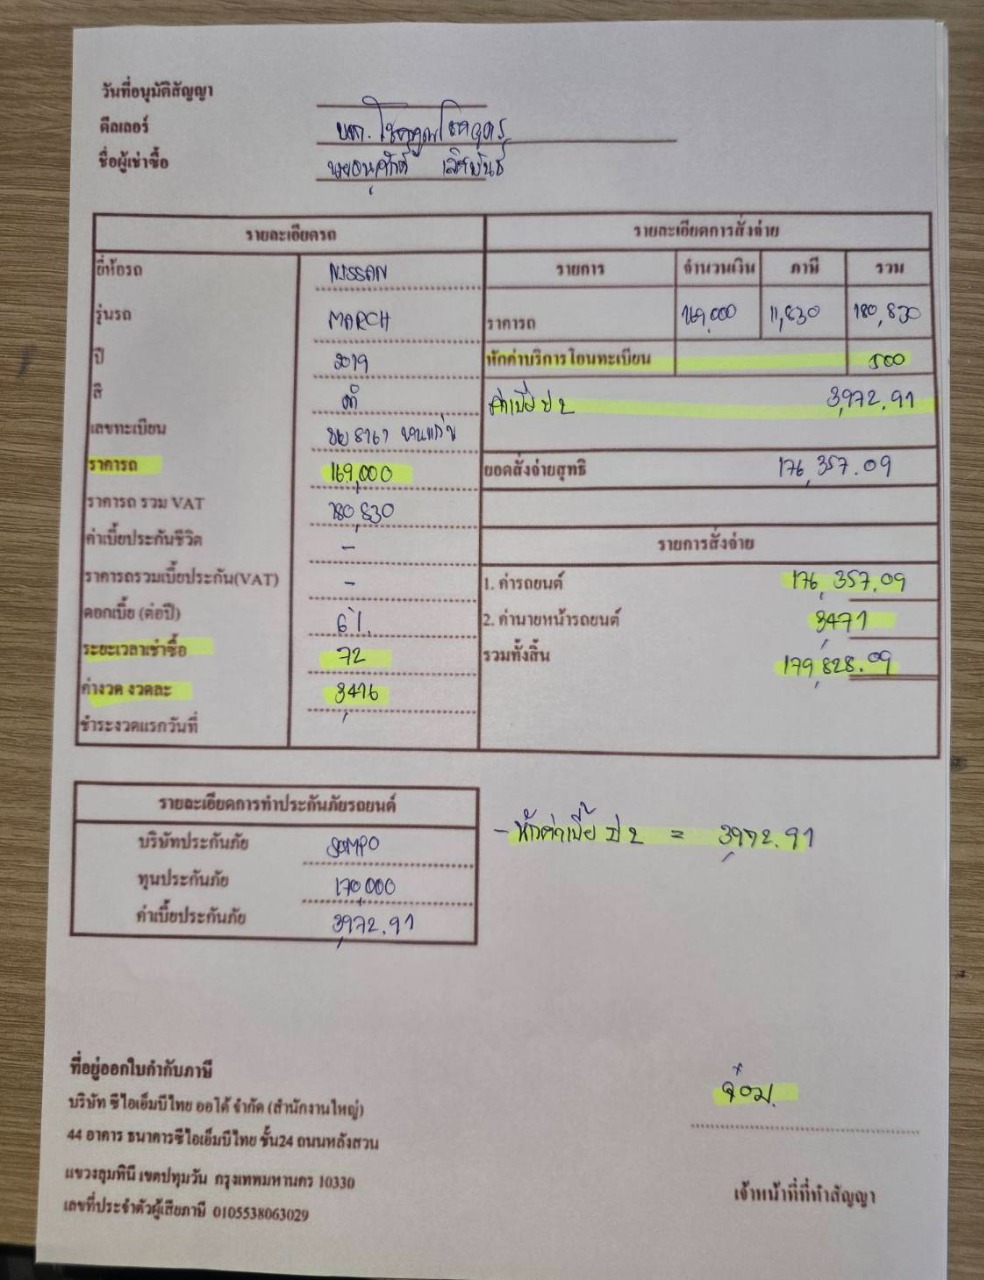 วันที่อนุมัติสัญญา
ดีลเลอร์ บจก.
ชื่อผู้เช่าซื้อ
รายละเอียดรถ
ยี่ห้อรถ NISSAN
รุ่นรถ MARCH
ปี 2019
สี ดำ
เลขทะเบียน ขอนแก่น
ราคารถ 169,000
ราคารถ รวม VAT 180,830
ค่าเบี้ยประกันชีวิต -
ราคารถรวมเบี้ยประกัน(VAT) -
ดอกเบี้ย (ต่อปี) 6%
ระยะเวลาเช่าซื้อ 72
ค่างวด งวดละ
ชำระงวดแรกวันที่
รายละเอียดการสั่งจ่าย
รายการ จำนวนเงิน ภาษี รวม
ราคารถ 169,000 11,830 180,830
หักค่าบริการโอนทะเบียน 500
ค่าเบี้ย ป 2 3,972.91
ยอดสั่งจ่ายสุทธิ 176,357.09
รายการสั่งจ่าย
1. ค่ารถยนต์ 176,357.09
2. ค่านายหน้ารถยนต์ 3,471
รวมทั้งสิ้น 179,828.09
รายละเอียดการทำประกันภัยรถยนต์
บริษัทประกันภัย SOMPO
ทุนประกันภัย 170,000
ค่าเบี้ยประกันภัย 3,972.91
- หักค่าเบี้ย ป 2 = 3,972.91
ที่อยู่ออกใบกำกับภาษี
บริษัท ซีไอเอ็มบีไทย ออโต้ จำกัด (สำนักงานใหญ่)
44 อาคาร ธนาคารซีไอเอ็มบีไทย ชั้น24 ถนนหลังสวน
แขวงลุมพินี เขตปทุมวัน กรุงเทพมหานคร 10330
เลขที่ประจำตัวผู้เสียภาษี 0105538063029
เจ้าหน้าที่ที่ทำสัญญา